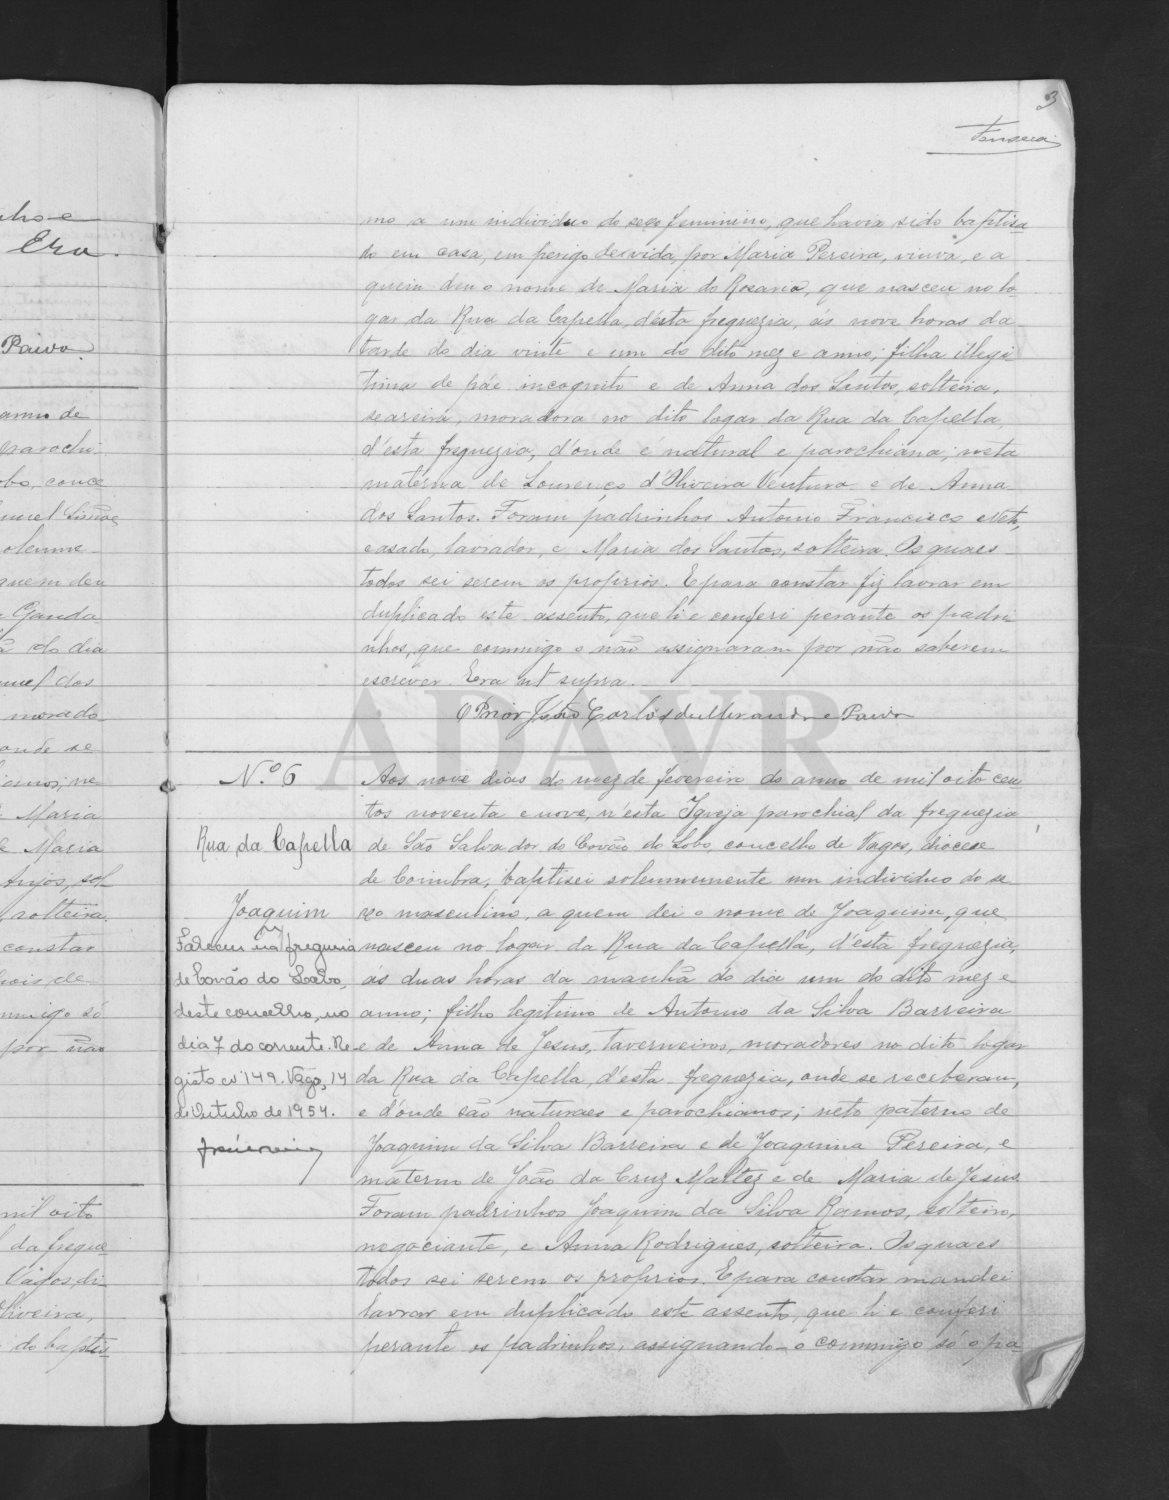 3
Fonseca
mo a um individuo do sexo feminino, que havia sido baptisa
do em casa, em perigo de vida, por Maria Pereira, viuva, e a
quem deu o nome de Maria do Rosario, que nasceu no lo-
gar da Rua da Capella, d'esta freguezia, ás nove horas da
tarde do dia vinte e um do dito mez e anno; filha illegi-
tima de páe incognito e de Anna dos Santos, solteira,
seareira, moradora no dito logar da Rua da Capella,
d'esta freguezia, d'onde é natural e parochiana; neta
materna de Lourenço d'Oliveira Ventura e de Anna
dos Santos. Foram padrinhos Antonio Francisco Neto,
casado, lavrador, e Maria dos Santos, solteira. Os quaes
todos sei serem os proprios. E para constar fiz lavrar em
duplicado este assento, que li e conferi perante os padri
nhos, que commigo o não assignaram por não saberem
escrever. Era ut supra.
O Prior João Carlos de Miranda e Paiva
ADAVR
N.º 6
Rua da Capella
Joaquim
Faleceu na freguesia
de Covão do Lobo,
deste concelho, no
dia 7 do corrente. Re
gisto nº 149. Vagos, 14
de Outubro de 1954.
Aos nove dias do mez de fevereiro do anno de mil oito cen
tos noventa e nove, n'esta Igreja parochial da freguezia
de São Salvador do Covão do Lobo, concelho de Vagos, diocese
de Coimbra, baptisei solemnemente um individuo do se
xo masculino, a quem dei o nome de Joaquim, que
nasceu no logar da Rua da Capella, d'esta freguezia,
ás duas horas da manhã do dia um do dito mez e
anno; filho legitimo de Antonio da Silva Barreira
e de Anna de Jesus, taverneiros, moradores no dito logar
da Rua da Capella, d'esta freguezia, onde se receberam,
e d'onde são naturaes e parochianos; neto paterno de
Joaquim da Silva Barreira e de Joaquina Pereira, e
materno de João da Cruz Maltez e de Maria de Jesus.
Foram padrinhos Joaquim da Silva Ramos, solteiro,
negociante, e Anna Rodrigues, solteira. Os quaes
todos sei serem os proprios. E para constar mandei
lavrar em duplicado este assento, que li e conferi
perante os padrinhos, assignando-o commigo só o pa-